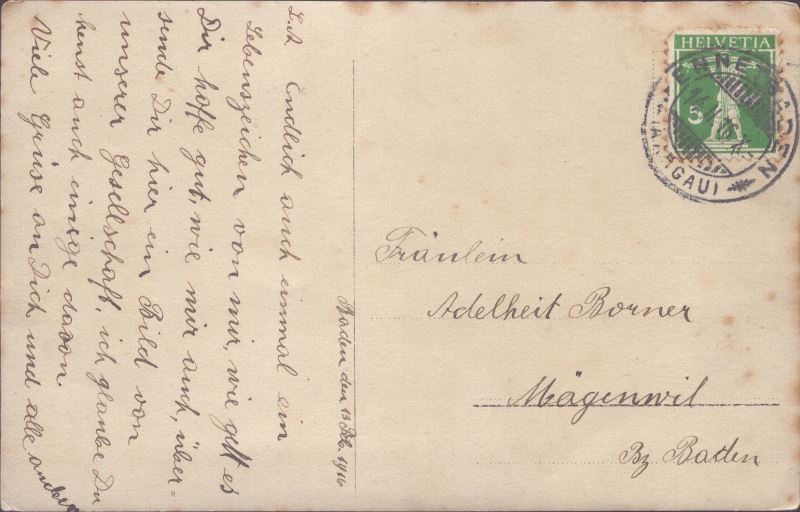 Baden den 13 Feb. 1916
L. A. Endlich auch einmal ein
Lebenszeichen von mir, wie geht es
Dir hoffe gut, wie mir auch, über-
sende Dir hier ein Bild von
unserer Gesellschaft, ich glaube Du
kenst auch einige davon.
Viele Grüse an Dich und alle andern
HELVETIA
5
ENNETBADEN
(AARGAU)
Fräulein
Adelheit Borner
Mägenwil
Bz Baden